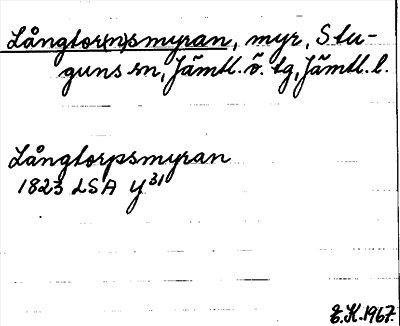 Långtor(n)psmyran, myr, Stu-
guns sn, Jämtl. ö. tg, Jämtl. l.
Långtorpsmyran
1823 LSA Y 31
E.K. 1967.